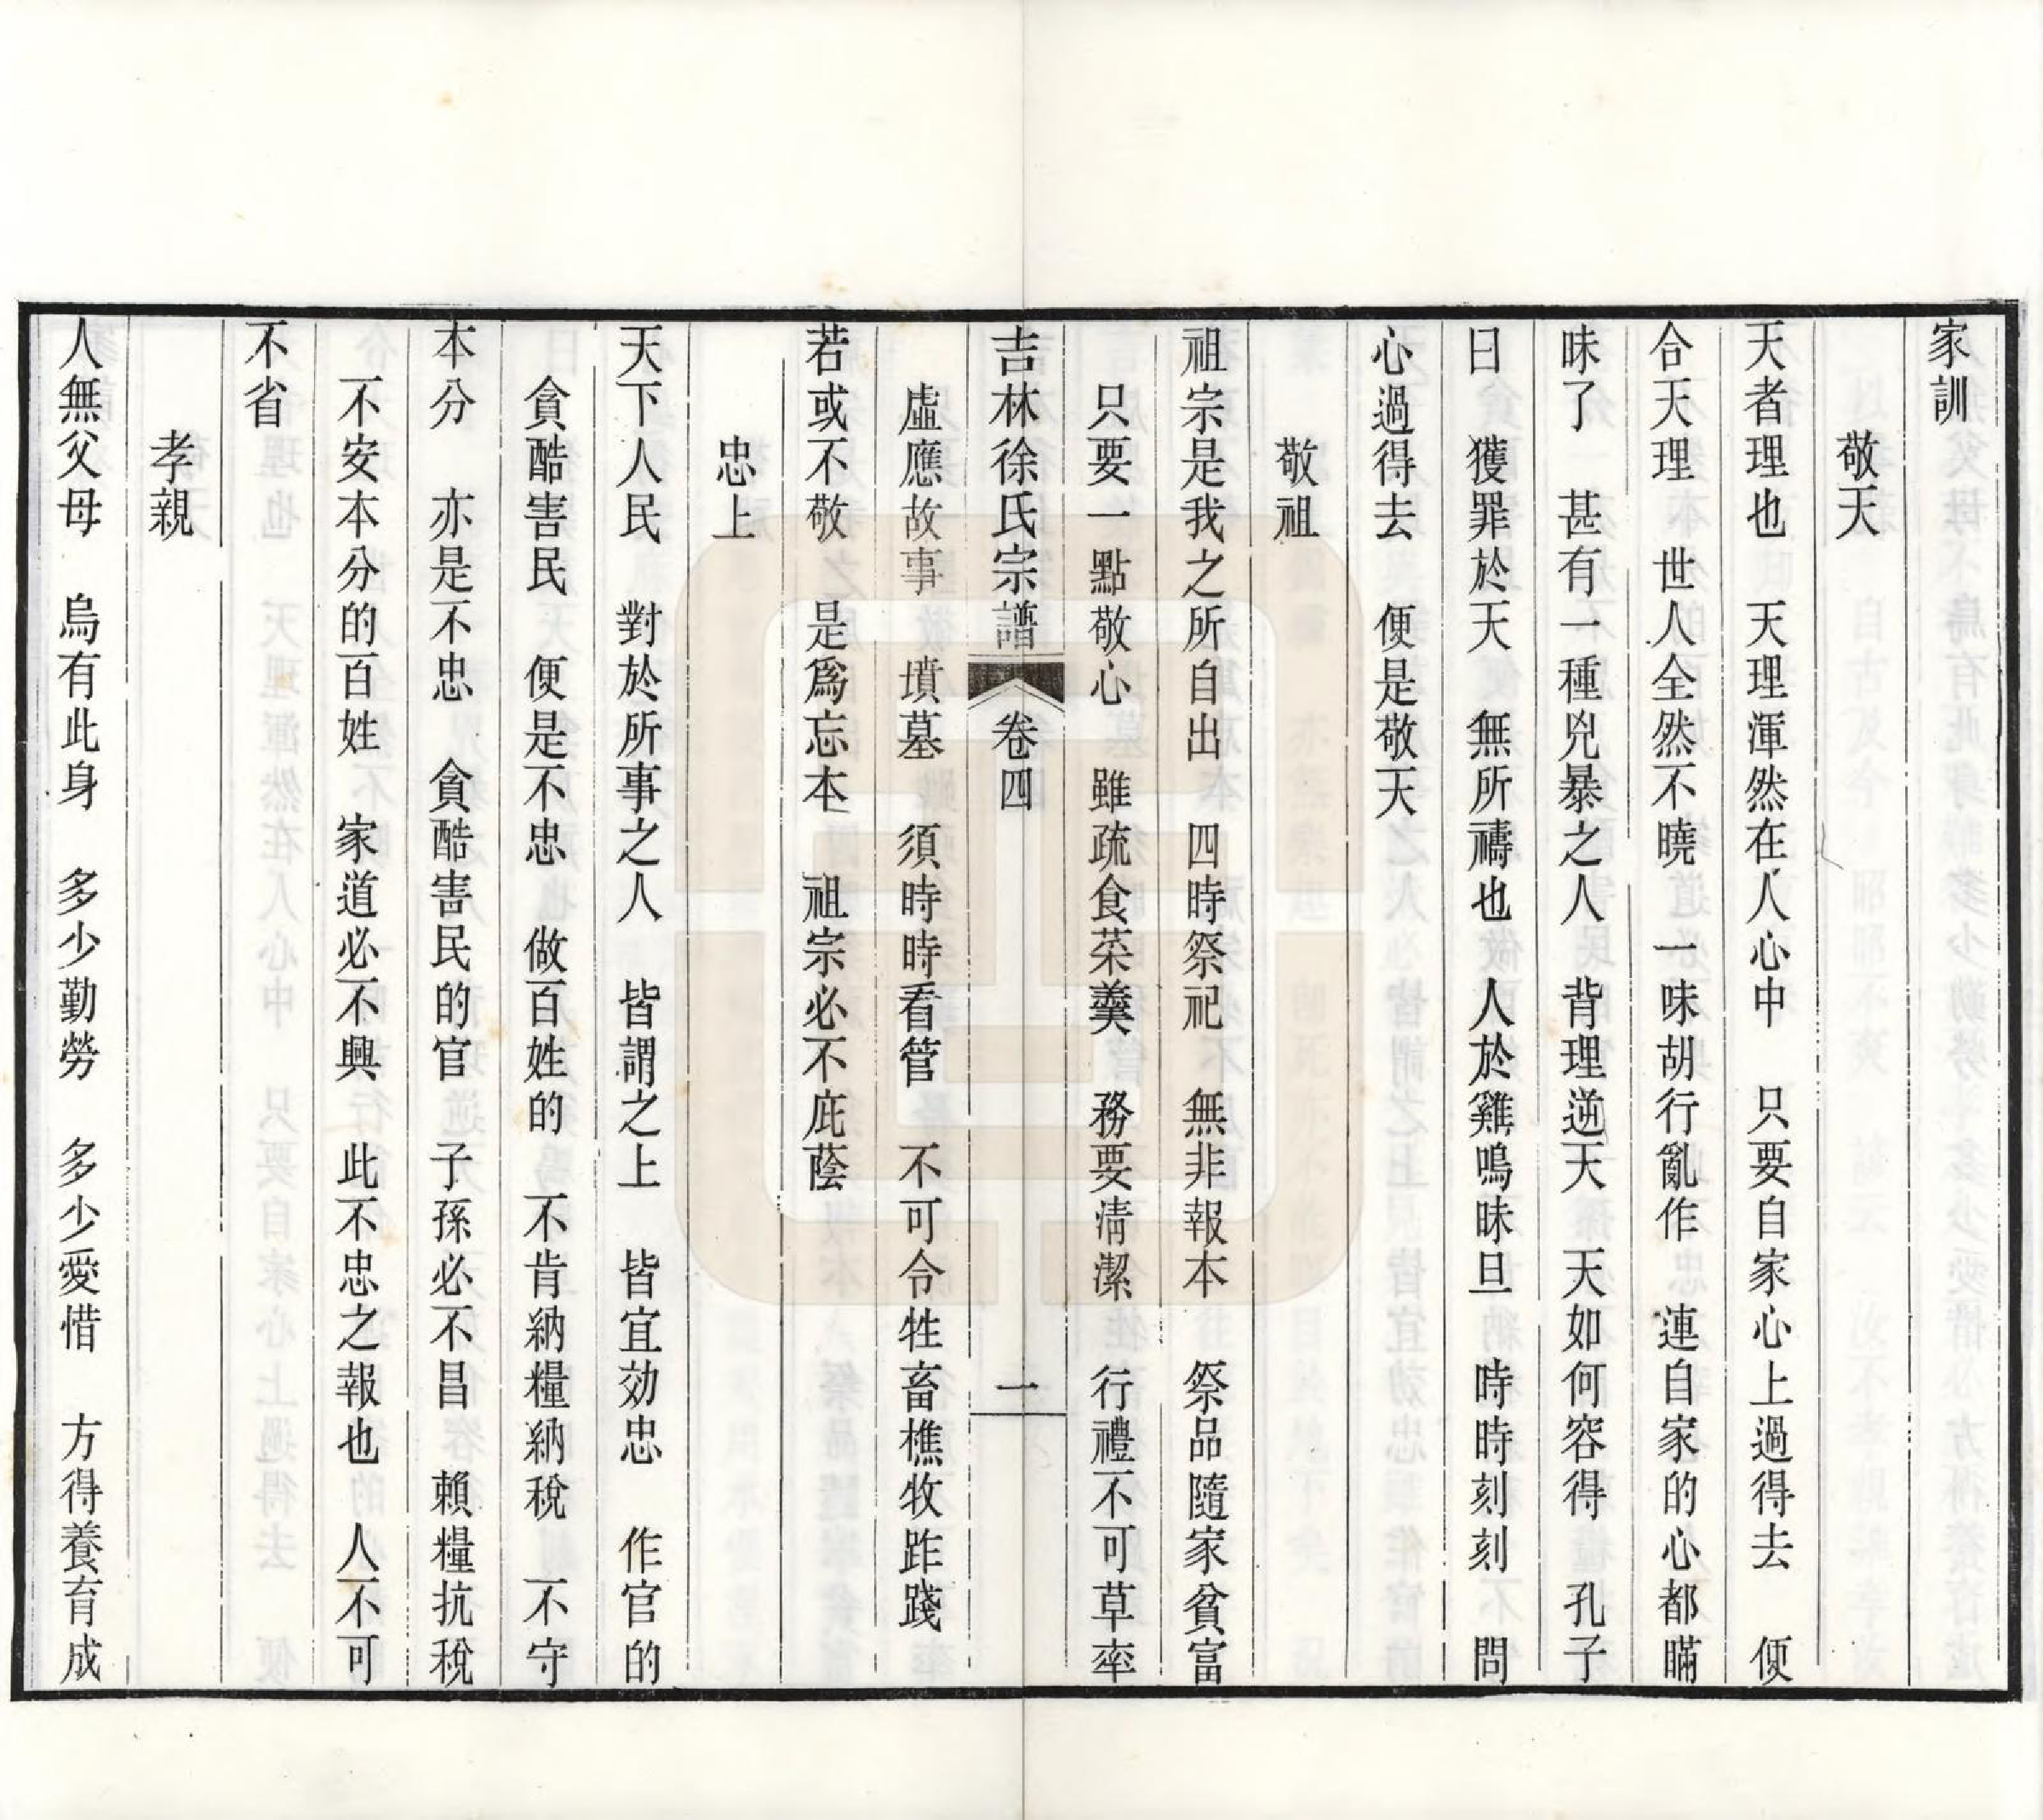 家訓
敬天
天者理也　天理渾然在人心中　只要自家心上過得去　便
合天理　世人全然不曉　一味胡行亂作　連自家的心都瞞
昧了　甚有一種兇暴之人　背理逆天　天如何容得　孔子
曰　獲罪於天　無所禱也　人於雞鳴昧旦　時時刻刻　問
心過得去　便是敬天
敬祖
祖宗是我之所自出　四時祭祀　無非報本　祭品隨家貧富
只要一點敬心　雖疏食菜羹　務要清潔　行禮不可草率
吉林徐氏宗譜　卷四　一
虛應故事　墳墓　須時時看管　不可令牲畜樵牧跓踐
若或不敬　是爲忘本　祖宗必不庇蔭
忠上
天下人民　對於所事之人　皆謂之上　皆宜効忠　作官的
貪酷害民　便是不忠　做百姓的　不肯納糧納稅　不守
本分　亦是不忠　貪酷害民的官　子孫必不昌　賴糧抗稅
不安本分的百姓　家道必不興　此不忠之報也　人不可
不省
孝親
人無父母　烏有此身　多少勤勞　多少愛惜　方得養育成